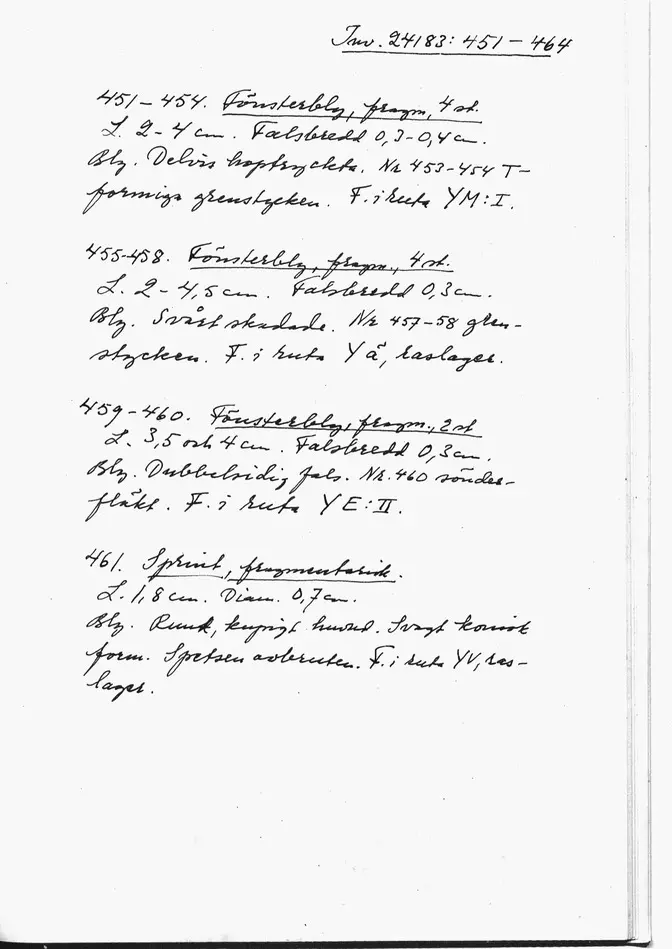 Inv. 24183: 451 – 464
451 – 454. Fönsterbly, fragm, 4 st.
L. 2 – 4 cm. Falsbredd 0,3 – 0,4 cm.
Bly. Delvis hoptryckta. Nr 453 – 454 T-
formiga grenstycken. F. i ruta YM: I.
455-458. Fönsterbly, fragm., 4 st.
L. 2 – 4,5 cm. Falsbredd 0,3 cm.
Bly. Svårt skadade. Nr 457 – 58 gren-
stycken. F. i ruta Y Å, raslager.
459 – 460. Fönsterbly, fragm., 2 st
L. 3,5 och 4 cm. Falsbredd 0,3 cm.
Bly. Dubbelsidig fals. Nr. 460 sönder-
fläkt. F. i ruta YE: II.
461. Sprint, fragmentarisk.
L. 1,8 cm. Diam. 0,7 cm.
Bly. Runt, kupigt huvud. Svagt konisk
form. Spetsen avbruten. F. i ruta YV, ras-
lager.